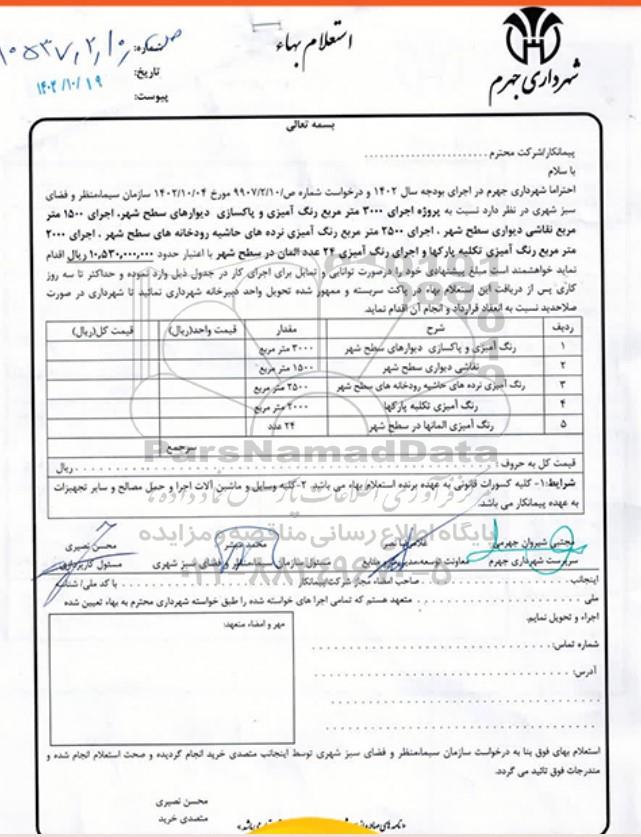 استعلام بهاء
شهرداری جهرم
شماره:
تاریخ: ۱۴۰۲/۱۰/۱۹
پیوست:
بسمه تعالی
پیمانکار/شرکت محترم........................
با سلام
احتراما شهرداری جهرم در اجرای بودجه سال ۱۴۰۲ و درخواست شماره ص/۹۹۰۷/۲/۱۰ مورخ ۱۴۰۲/۱۰/۰۴ سازمان سیما،منظر و فضای
سبز شهری در نظر دارد نسبت به پروژه اجرای ۳۰۰۰ متر مربع رنگ آمیزی و پاکسازی دیوارهای سطح شهر، اجرای ۱۵۰۰ متر
مربع نقاشی دیواری سطح شهر ، اجرای ۲۵۰۰ متر مربع رنگ آمیزی نرده های حاشیه رودخانه های سطح شهر ، اجرای ۲۰۰۰
متر مربع رنگ آمیزی تکلبه پارکها و اجرای رنگ آمیزی ۲۴ عدد المان در سطح شهر با اعتبار حدود ۱۰،۵۳۰،۰۰۰،۰۰۰ ریال اقدام
نماید خواهشمند است مبلغ پیشنهادی خود را درصورت توانایی و تمایل برای اجرای کار در جدول ذیل وارد نموده و حداکثر تا سه روز
کاری پس از دریافت این استعلام بهاء در پاکت سربسته و ممهور شده تحویل واحد دبیرخانه شهرداری نمائید تا شهرداری در صورت
صلاحدید نسبت به انعقاد قرارداد و انجام آن اقدام نماید.
ردیف شرح مقدار قیمت واحد(ریال) قیمت کل(ریال)
۱ رنگ آمیزی و پاکسازی دیوارهای سطح شهر ۳۰۰۰ متر مربع
۲ نقاشی دیواری سطح شهر ۱۵۰۰ متر مربع
۳ رنگ آمیزی نرده های حاشیه رودخانه های سطح شهر ۲۵۰۰ متر مربع
۴ رنگ آمیزی تکلبه پارکها ۲۰۰۰ متر مربع
۵ رنگ آمیزی المانها در سطح شهر ۲۴ عدد
سرجمع
ParsNamadData
قیمت کل به حروف : ........................ ریال
شرایط:۱- کلیه کسورات قانونی به عهده برنده استعلام بهاء می باشد. ۲-کلیه وسایل و ماشین آلات اجرا و حمل مصالح و سایر تجهیزات
به عهده پیمانکار می باشد.
پایگاه اطلاع رسانی مناقصه و مزایده
مجتبی شیروان جهرمی محسن نصیری
سرپرست شهرداری جهرم معاونت توسعه،مدیریت و منابع مسئول سازمان سیما،منظر و فضای سبز شهری مسئول کارپردازی
اینجانب........................ صاحب امضاء مجاز شرکت/پیمانکار........................ با کد ملی/ شناسه
ملی ........................ متعهد هستم که تمامی اجرا های خواسته شده را طبق خواسته شهرداری محترم به بهاء تعیین شده
اجراء و تحویل نمایم.
مهر و امضاء متعهد:
شماره تماس:........................
آدرس:........................
استعلام بهای فوق بنا به درخواست سازمان سیما،منظر و فضای سبز شهری توسط اینجانب متصدی خرید انجام گردیده و صحت استعلام انجام شده و
مندرجات فوق تائید می گردد.
محسن نصیری
متصدی خرید